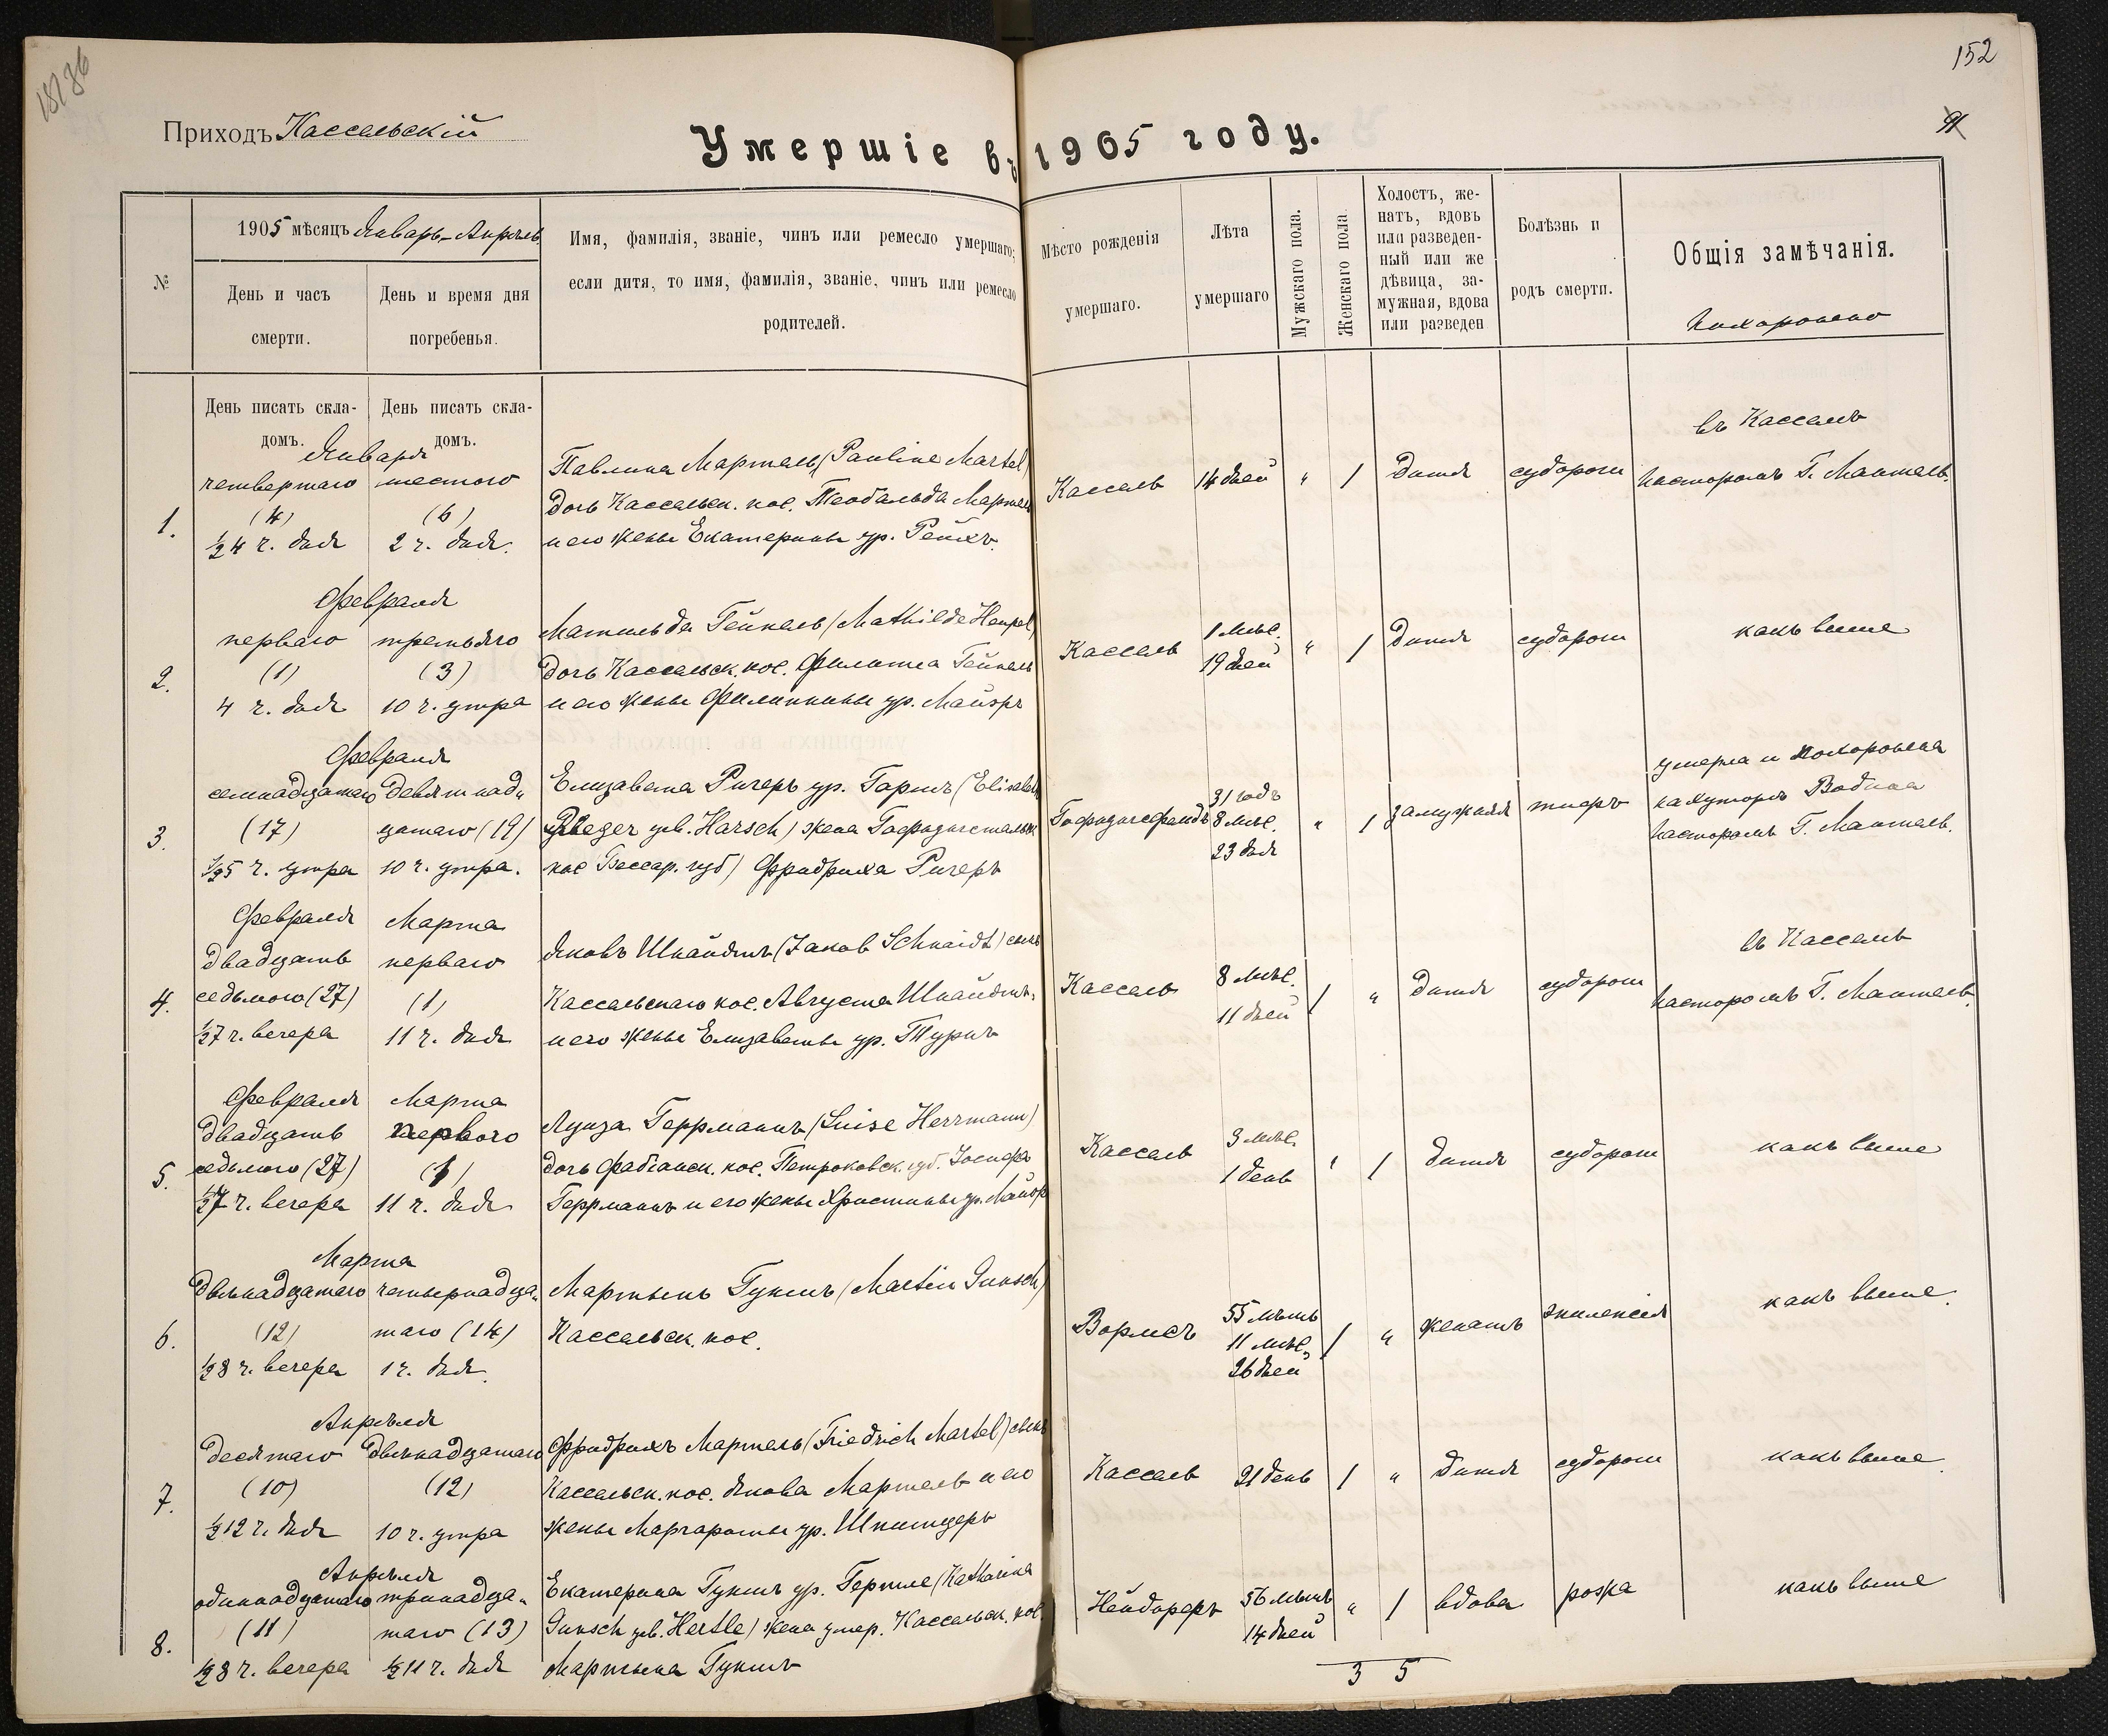 18736
152
91
Приходъ Кассельскій
Умершіе въ 1905 году.
№
1905 мѣсяцъ Январь-Апрѣль
День и часъ
смерти.
День и время дня
погребенья.
Имя, фамилія, званіе, чинъ или ремесло умершаго;
если дитя, то имя, фамилія, званіе, чинъ или ремесло
родителей.
Мѣсто рожденія
умершаго.
Лѣта
умершаго
Мужскаго пола.
Женскаго пола
Холостъ, же-
натъ, вдовъ
или разведен-
ный или же
дѣвица, за-
мужная, вдова
или разведен
Болѣзнь и
родъ смерти.
Общія замѣчанія.
Похоронено
День писать скла-
домъ.
День писать скла-
домъ.
1.
Января
четвертаго
(4)
½4 ч. дня
шестого
(6)
2 ч. дня.
Павлина Мартель (Pauline Martel)
дочь Кассельск. пос. Теобальда Мартель
и его жены Екатерины ур. Рейхъ.
Кассель
14 дней
" 1
дитя
судороги
въ Касселѣ
пасторомъ Г. Мантель.
2.
Февраля
перваго
(1)
4 ч. дня
третьяго
(3)
10 ч. утра
Матильда Гейпель (Mathilde Heupel)
дочь Кассельск. пос. Филиппа Гейпель
и его жены Филиппины ур. Майэръ
Кассель
1 мѣс.
19 дней
" 1
дитя
судороги
какъ выше
3.
Февраля
семнадцатаго
(17)
½5 ч. утра
девятнад-
цатаго (19)
10 ч. утра.
Елизавета Ригеръ ур. Гаршъ (Elisabeth
Rieger geb. Harsch) жена
пос Бессар. губ) Фридриха Ригеръ
31 годъ
8 мѣс.
23 дня
" 1
замужняя
тифъ
умерла и похоронена
на хуторѣ Водная
пасторомъ Г. Мантель.
4.
Февраля
двадцать
седьмого (27)
½7 ч. вечера
Марта
перваго
(1)
11 ч. дня
Яковъ Шнайдтъ (Jakob Schnaidt) сынъ
Кассельскаго пос. Августа Шнайдтъ
и его жены Елизаветы ур. Туршъ
Кассель
8 мѣс.
11 дней
1 "
дитя
судороги
въ Касселѣ
пасторомъ Г. Мантель.
5.
Февраля
двадцать
седьмого (27)
½7 ч. вечера
Марта
перваго
(1)
11 ч. дня
Луиза Геррманнъ (Luise Herrmann)
дочь Фабіанск. пос. Петроковск. губ. Іосифа
Геррманнъ и его жены Христины ур. Майэръ
Кассель
3 мѣс.
1 день
" 1
дитя
судороги
какъ выше
6.
Марта
двѣнадцатаго
(12)
½8 ч. вечера
четырнадца-
таго (14)
1 ч. дня.
Мартынъ Гукшъ (Martin Guksch)
Кассельск. пос.
Вормсъ
55 лѣтъ
11 мѣс.
26 дней
1 "
женатъ
эпилепсія
какъ выше.
7.
Апрѣля
десятаго
(10)
½12 ч. дня
двѣнадцатаго
(12)
10 ч. утра
Фридрихъ Мартель (Friedrich Martel) сынъ
Кассельск. пос. Якова Мартель и его
жены Маргареты ур. Шпитцеръ
Кассель
21 день
1 "
дитя
судороги
какъ выше.
8.
Апрѣля
одиннадцатаго
(11)
½8 ч. вечера
тринадца-
таго (13)
½11 ч. дня
Екатерина Гукшъ ур. Гертле (Katharina
Guksch geb. Hertle) жена умер. Кассельск. пос
Мартына Гукшъ
Нейдорфъ
56 лѣтъ
14 дней
" 1
вдова
рожа
какъ выше
3 5